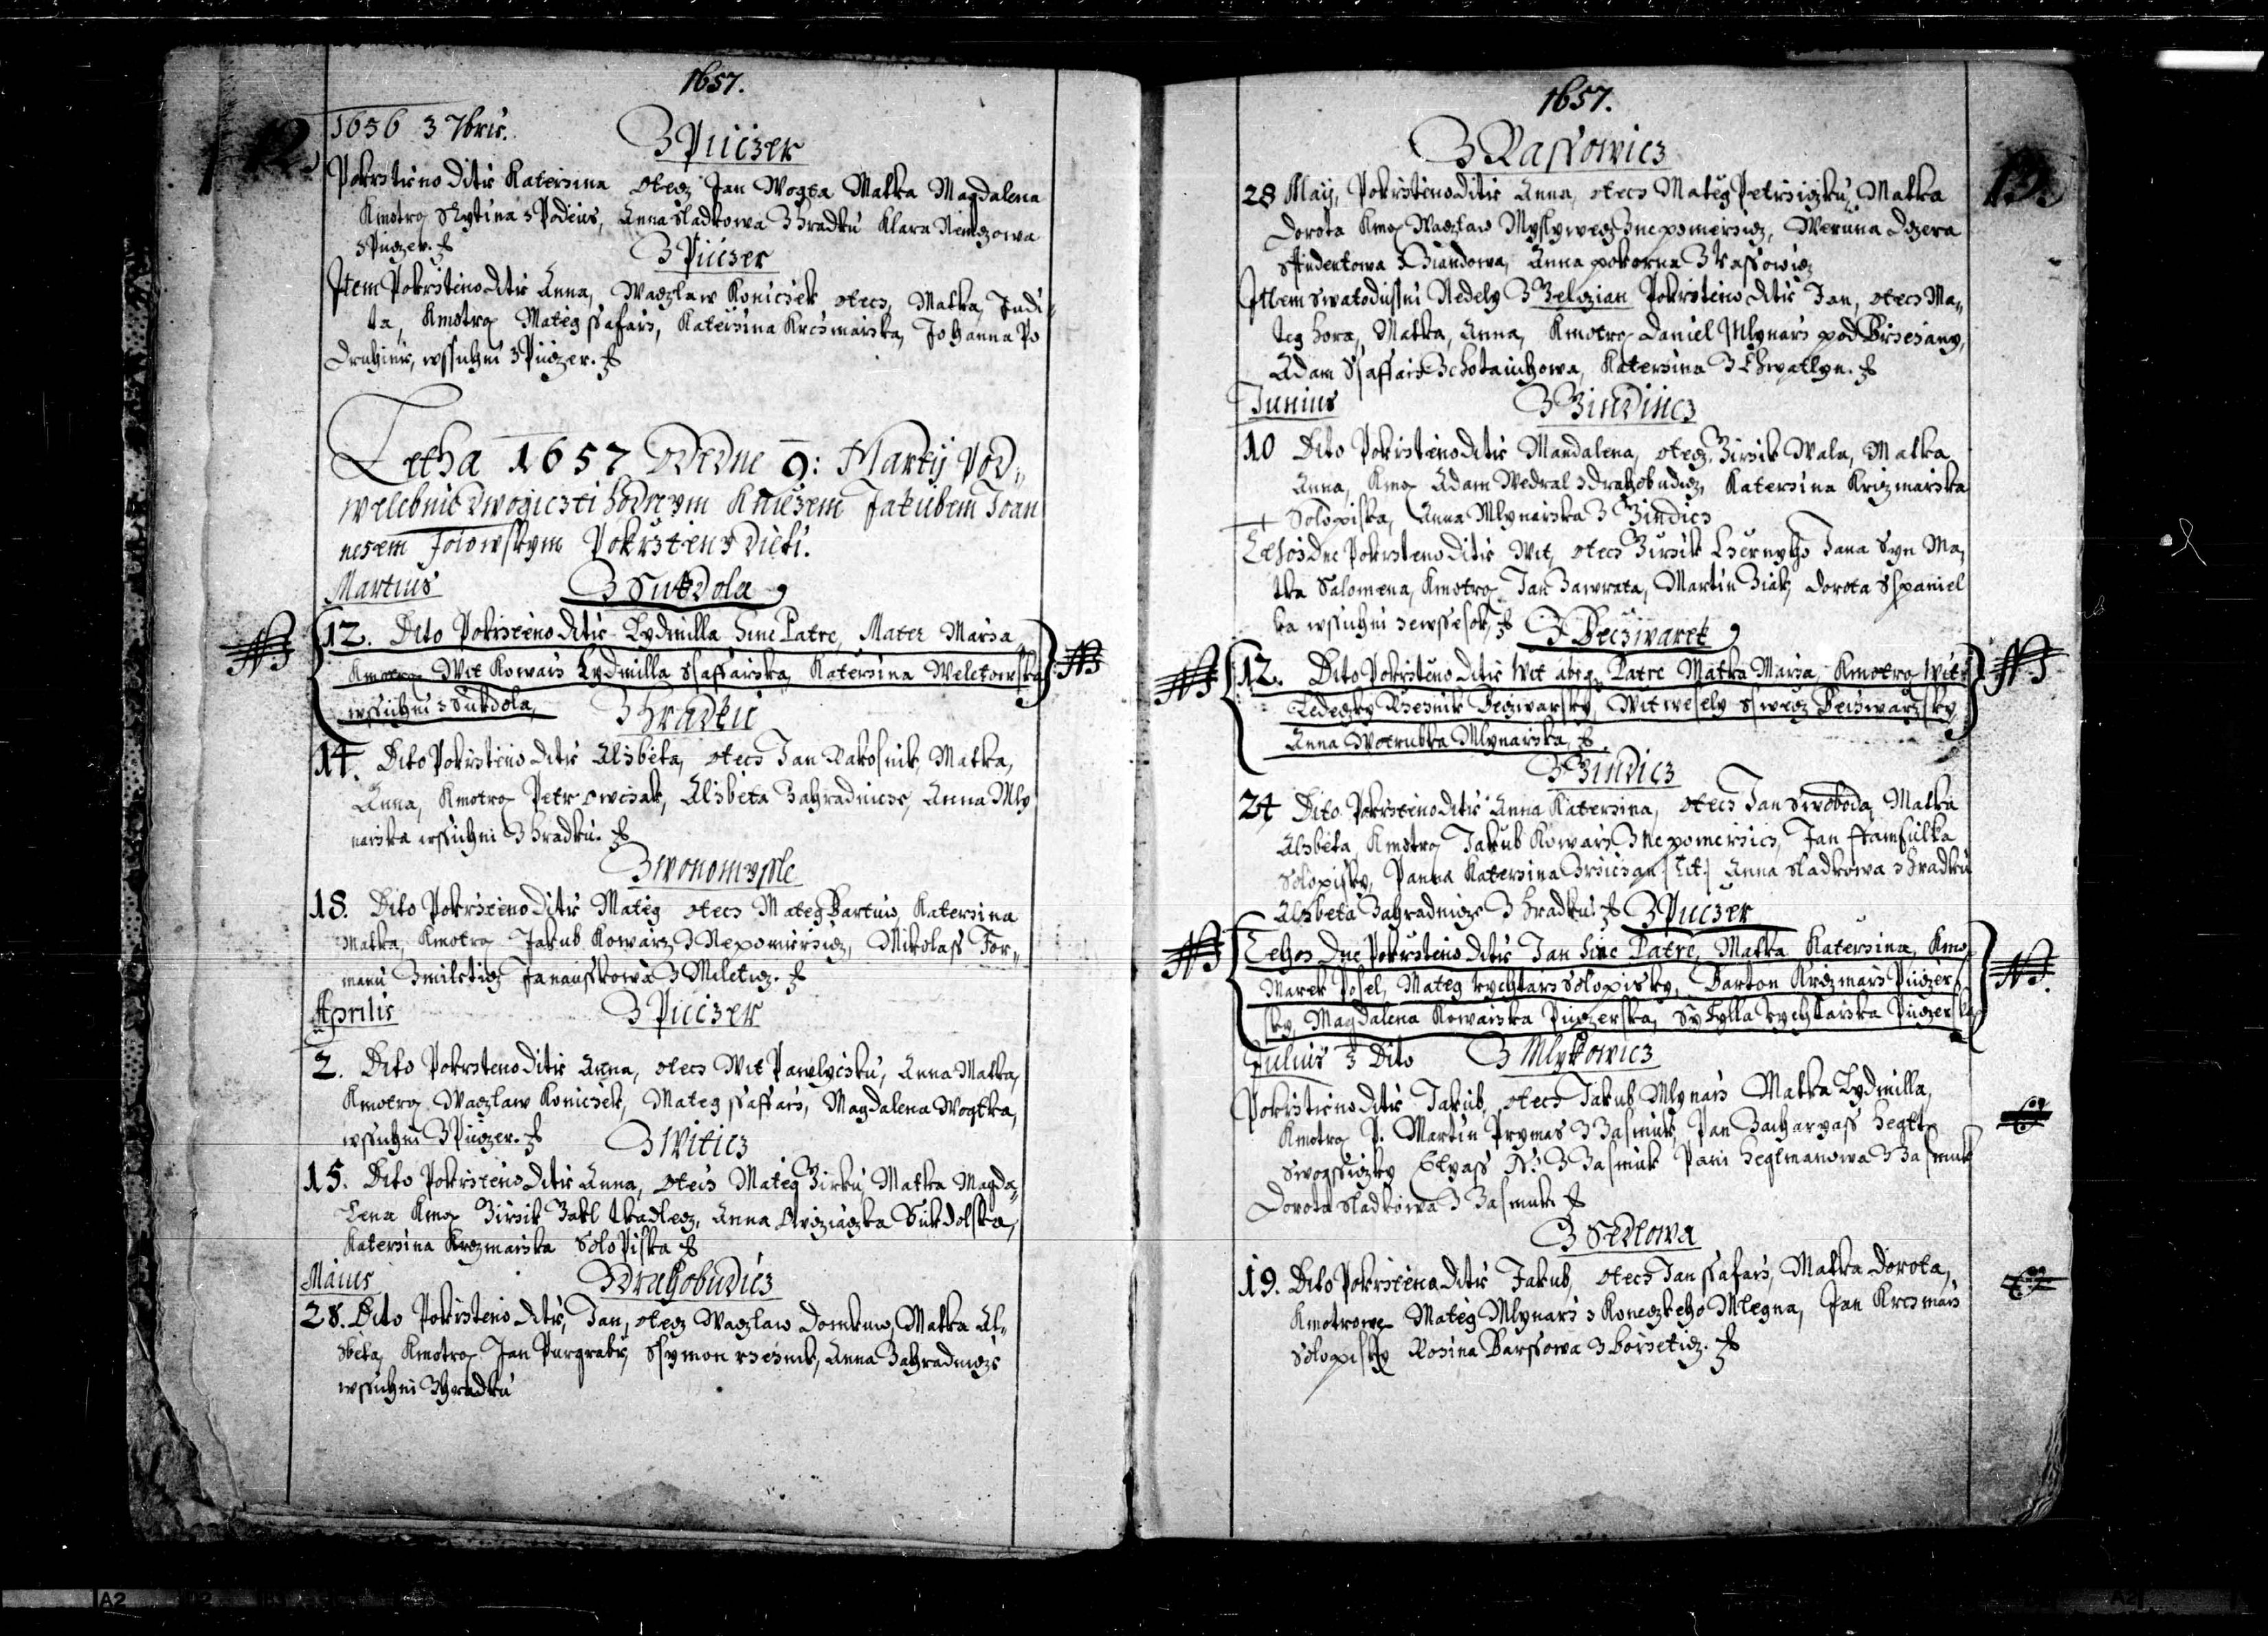 1657.
12.
1656 3 7bris.
Z Pučzer
Pokrstieno Ditie Katersina Otecz Jan Wogta Matka Magdalena
Kmotrz z Podewis, Anna Sladkowa z Hradku Klara Nemczowa
z Puczer.
Z Puczer
Item Pokrstieno Ditie Anna, Waczlaw Koniczek otecz, Matka Judi-
ta, Kmotrz Mateg ssafarz, Katersina Krcsmarska, Johanna Po
Druhinie, wssichni z Puczer.
Letha 1657 Dne 9: Martij Pod
welebnie Dwogicztihodnym Kniezem Jakubem Joan
nesem Pokrsteny Dieti.
Martius
Z Sukdola
12. Dito Pokrsteno Ditie Lydmilla Sine Patre, Mater Marsa
Kmotrz Wit Kowars Lydmilla Ssaffarska, Katersina Weletowska
wssichni z Sukdola,
Z Hradku
14. Dito Pokrsteno Ditie Alzbeta, otecz Jan Rakosnik, Matka,
Anna, Kmotrz Petr Owczak, Alzbeta Zahradnicze, Anna Mly
narska wssichni z Hradku.
Z Wonomyssle
18. Dito Pokrsteno Ditie Mateg otecz Mateg Bartus, Katersina
Matka, Kmotrz Jakub Kowarz z Nepomiersicz, Mikolass For-
manu z Mileticz Janausskowa z Miletig.
Aprilis
Z Puczer
2. Dito Pokrsteno Ditie Anna, otecz Wit Pawlycsku, Anna Matka,
Kmotrz Waczlaw Koniczek, Mateg ssaffars, Magdalena Wogtka,
wssichni z Puczer.
Z Witicz
15. Dito Pokrsteno Ditie Anna, otecz Mateg Zirku, Matka Magda-
lena Kmo Zirsik Zakl tkadlecz, Anna Sukdolska,
Katersina Krczmarska Solopiska
Maius
Z Drahobudicz
28. Dito Pokrsteno Ditie, Jan, otecz Waczlaw Domkuw, Matka Al-
zbeta, Kmotrz Jan Purgrabie, Ssymon rzeznik, Anna Zahradnicze
wssichni z Hradku
1657.
13.
Z Rassowicz
28 Maij, Pokrsteno Ditie Anna, otecz Mateg Petrsiczku, Matka
Dorota Kmo Waczlaw Myslywecz z Nepomersicz, Weruna Dczera
Studentowa Anna pokorna z Rassowicz
Ittem Swatodussni Nedely z Pokrsteno Ditie Jan, otecz Ma-
teg Hora, Matka, Anna, Kmotrz Daniel Mlynars pod Brsesany,
Adam Ssaffars z Chotauchowa, Katersina z Chwatlyn.
Junius
Z Zindicz
10 Dito Pokrsteno Ditie Mandalena, otecz Zirsik Wala, Matka
Anna, Kmo Adam Wedral z Drahobudicz, Katersina Krczmarska
Solopiska, Anna Mlynarska z Zindicz
Tehoz Dne Pokrsteno Ditie Wit, otecz Zirsik Czernyho Jana Syn Ma-
tka Salomena, Kmotrz Jan Zawrata, Martin Ziak, Dorota Sspaniel
ka wssichni zewssesok,
Z Beczwarek
12. Dito Pokrsteno Ditie Wit absq Patre Matka Marsa, Kmotrz Wit
Ledeczky Rzeznik Beczwarsky, Wit wesely sswecz Beczwarsky
Anna Wotrubka Mlynarska,
Z Zindicz
24 Dito Pokrsteno Ditie Anna Katersina, otecz Jan Swoboda, Matka
Alzbeta, Kmotrz Jakub Kowars z Nepomersicz, Jan
Solopisky, Panna Katersina Zrsiczan (Tit.) Anna Sladkowa z Hradku
Alzbeta Zahradnicze z Hradku.
Z Puczer
Tehoz Dne Pokrsteno Ditie Jan Sine Patre, Matka Katersina, Kmo
Marek Posel, Mateg rychtars Solopisky, Barton Krczmars Puczer-
sky, Magdalena Kowarska Puczerska, Sybylla rychtarska Puczerska
Julius 3 Dito
Z Mlykowicz
Pokrstieno Ditie Jakub, otecz Jakub Mlynars Matka Lydmilla,
Kmotrz P. Martin Prymas z Zasmuk, Pan Zacharyass Hegt
Swogssiczky Elyass N: z Zasmuk Pani Heglmanowa z Zasmuk
Dorota Sladkowa z Zasmuk.
Z Sedlowa
19. Dito Pokrsteno Ditie Jakub, otecz Jan ssafars, Matka Dorota,
Kmotrowe Mateg Mlynars z Koneczkeho Mlegna, Jan Krcsmars
Solopisky Rosina Barssowa z Borsetig.